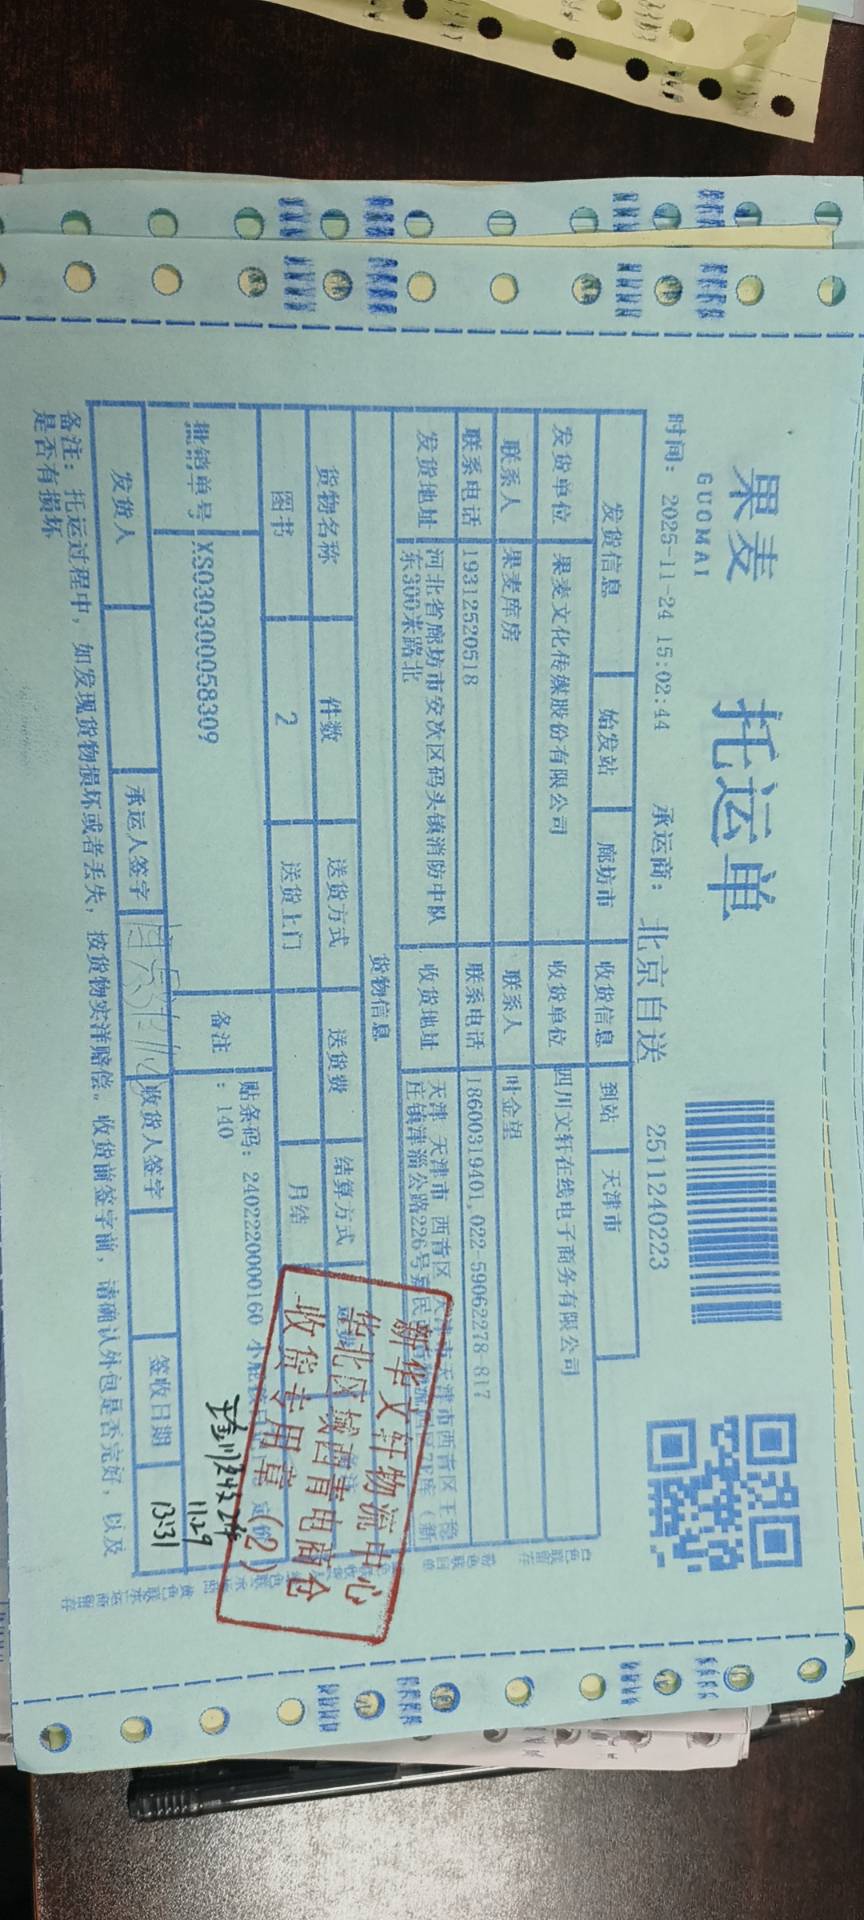 果麦
GUOMAI
托运单
时间：2025-11-24 15:02:44 承运商：北京自送 2511240223
发货信息 始发站 廊坊市 收货信息 到站 天津市
发货单位 果麦文化传媒股份有限公司 收货单位 四川文轩在线电子商务有限公司
联系人 果麦库房 联系人 叶金望
联系电话 19312520518 联系电话 18600319401,022-59062278-817
发货地址 河北省廊坊市安次区码头镇消防中队 收货地址 天津 天津市 西青区 天津市天津市西青区王稳
东300米路北 庄镇津淄公路226号
货物信息
货物名称 件数 送货方式 送货费 结算方式
图书 2 送货上门 月结
批销单号 XS030300058309 备注 贴条码：2402220000160
：140
发货人 承运人签字 收货人签字 签收日期
11.29
13:31
备注：托运过程中，如发现货物损坏或者丢失，按货物实洋赔偿。收货前签字前，请确认外包是否完好，以及
是否有损坏
新华文轩物流中心
华北区域西青电商仓
收货专用章（2）